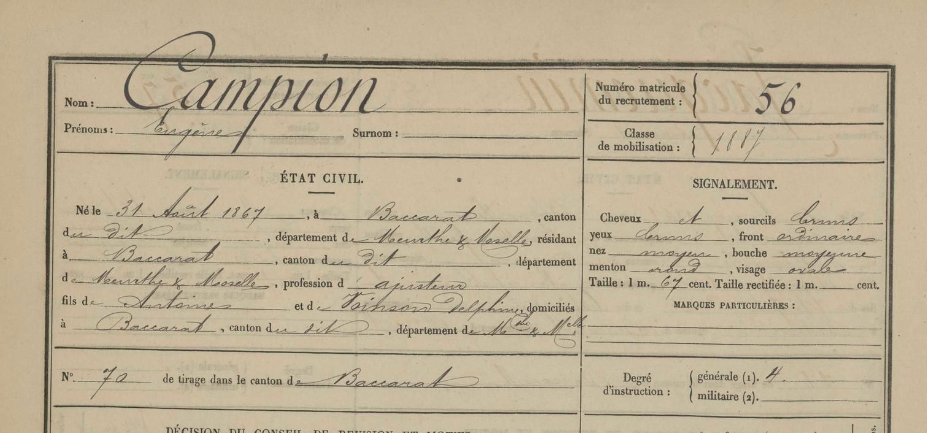 Nom : Campion
Prénoms : Eugène Surnom :
Numéro matricule
du recrutement : 56
Classe
de mobilisation : 1887
ÉTAT CIVIL.
Né le 31 Août 1867, à Baccarat, canton
du dit, département de Meurthe & Moselle, résidant
à Baccarat, canton du dit, département
de Meurthe & Moselle, profession d ajusteur
fils de Antoine et de Delphine, domiciliés
à Baccarat, canton du dit, département de Mthe & Mlle
SIGNALEMENT.
Cheveux et, sourcils bruns
yeux bruns, front ordinaire
nez moyen, bouche moyenne
menton rond, visage ovale
Taille : 1 m. 67 cent. Taille rectifiée : 1 m. cent.
MARQUES PARTICULIÈRES :
N° 70 de tirage dans le canton de Baccarat
Degré
d'instruction :
générale (1). 4.
militaire (2).
DÉCISION DU CONSEIL DE REVISION ET MOTIFS